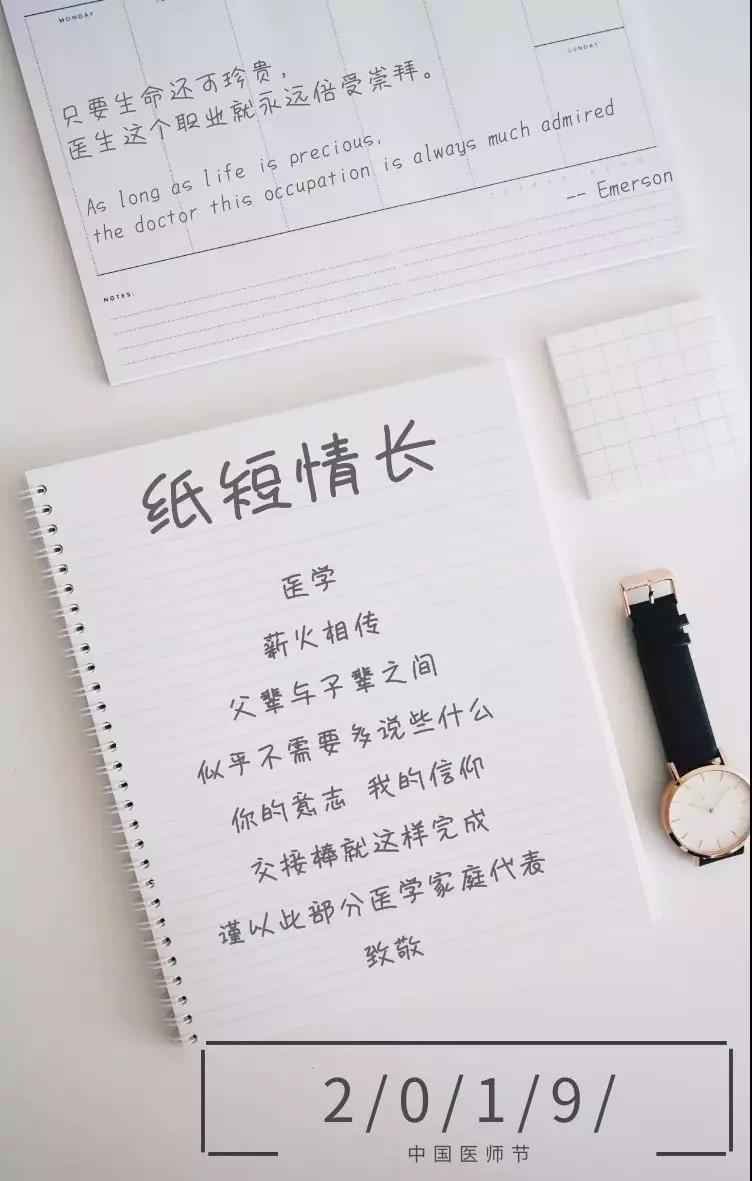 MONDAY
SUNDAY
只要生命还可珍贵，
医生这个职业就永远倍受崇拜。
As long as life is precious,
the doctor this occupation is always much admired
-- Emerson
NOTES:
纸短情长
医学
薪火相传
父辈与子辈之间
似乎不需要多说些什么
你的意志 我的信仰
交接棒就这样完成
谨以此部分医学家庭代表
致敬
2/0/1/9/
中国医师节